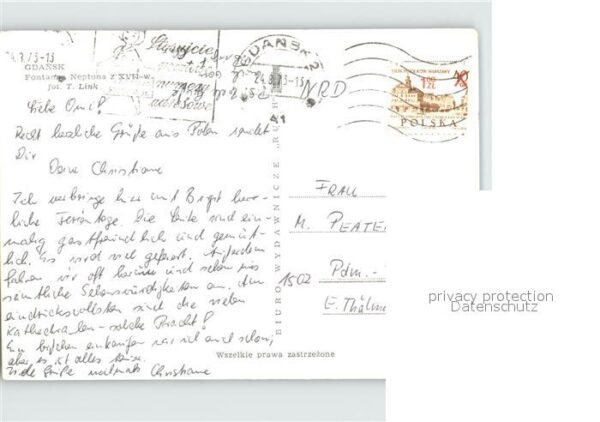 24.8.73-13
GDAŃSK
Fontanna Neptuna z XVII w.
fot. T. Link
Stosujcie
numery
adresowe
GDAŃSK 2
24.8.73-13
A1
NRD
1 ZŁ
POLSKA
Liebe Omi!
Recht herzliche Grüße aus Polen sendet
Dir
Deine Christiane
Ich verbringe hier mit Birgit herr-
liche Ferientage. Die Leute sind ein-
malig gastfreundlich und gemüt-
lich. Es wird viel gefeiert. Außerdem
fahren wir oft herum und sehen uns
sämtliche Sehenswürdigkeiten an. Am
eindrucksvollsten sind die vielen
Kathedralen - solche Pracht!
Ein bißchen einkaufen war ich auch schon,
aber es ist alles teuer.
Viele Grüße nochmals Christiane
BIURO WYDAWNICZE „RUCH"
FRAU
M. PEATE
1502 Pdm.-
E. Thälm
Wszelkie prawa zastrzeżone
privacy protection
Datenschutz